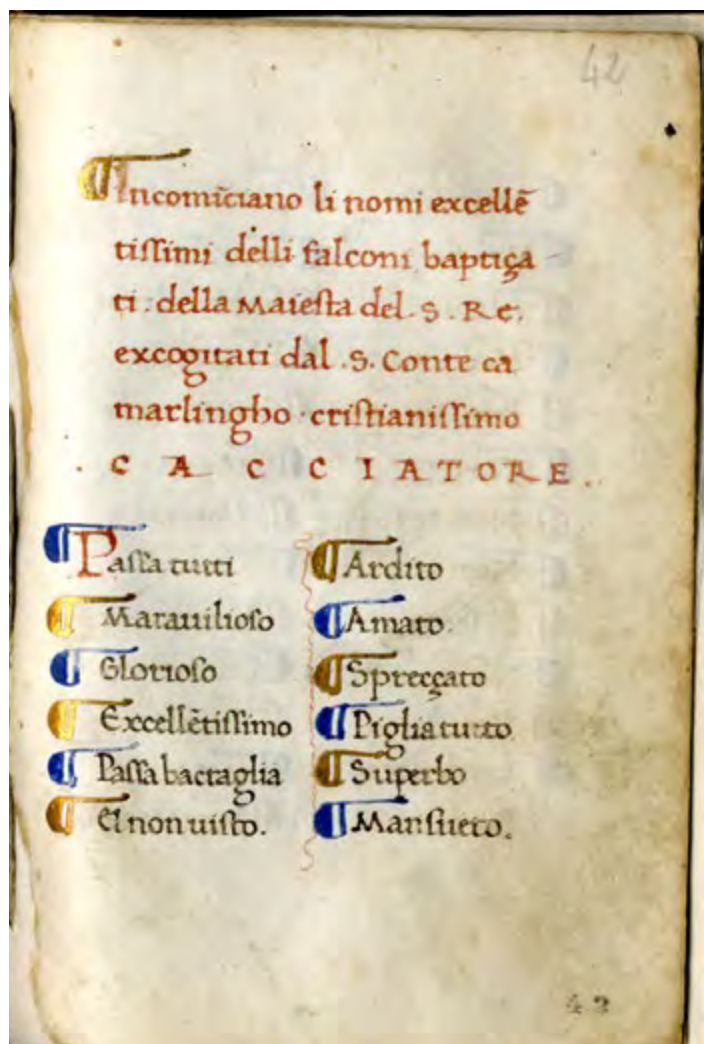 42
Incomĩciano li nomi excellẽ
tissimi delli falconi baptiça
ti . della Maiesta del . S . Re .
excogitati dal .S. Conte ca
marlingho . cristianissimo
. C A C C I A T O R E .
Passa tutti
Marauilioso
Glorioso
Excellẽtissimo
Passa bactaglia
El non uisto .
Ardito
Amato .
Spreççato
Piglia tutto
Superbo
Mansueto .